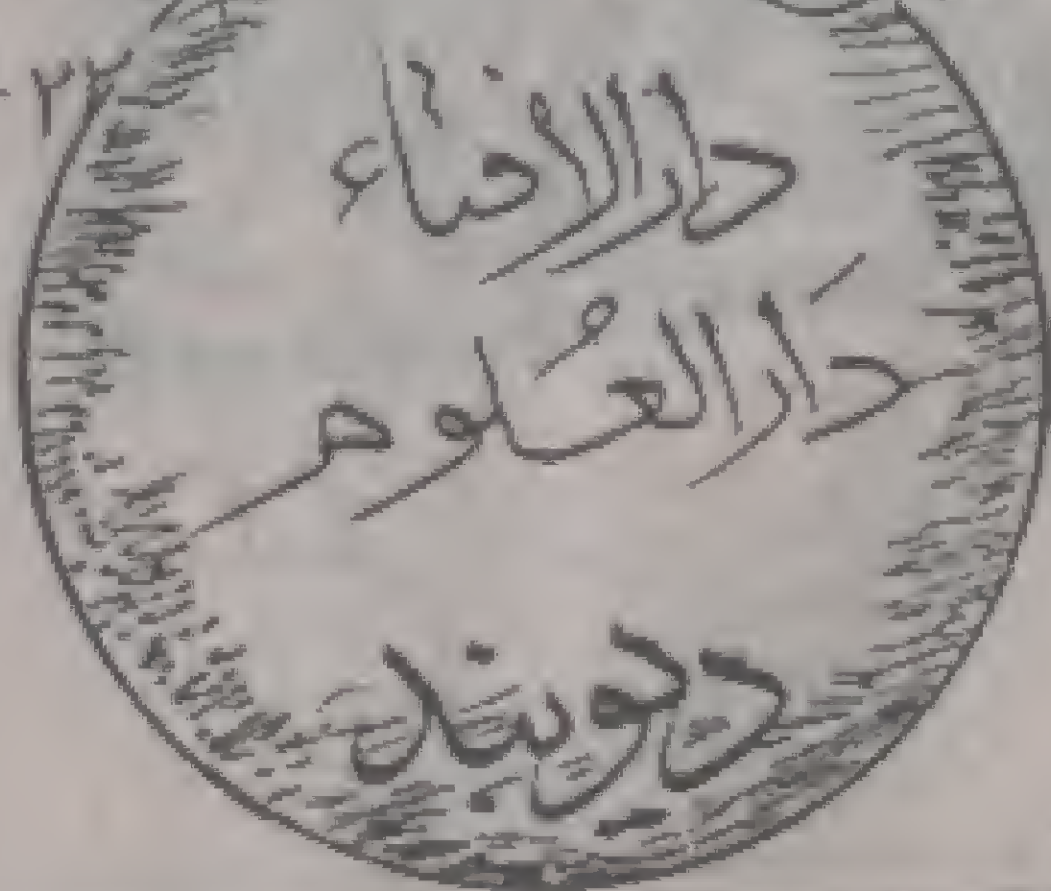 دار الافتاء
دَار العُلوم
دیوبند